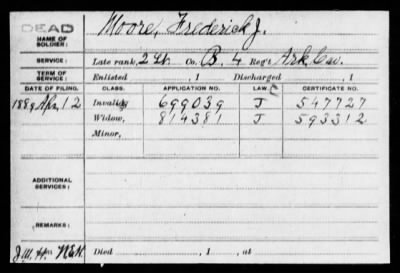 DEAD
NAME OF SOLDIER: Moore, Frederick J.
SERVICE: Late rank, 2 Lt. Co. B, 4 Reg't Ark Cav.
TERM OF SERVICE: Enlisted , 1 Discharged , 1
DATE OF FILING. CLASS. APPLICATION NO. LAW. CERTIFICATE NO.
1889 Apr, 12 Invalid, 699039 J 547727
Widow, 814381 J 593312
Minor,
ADDITIONAL SERVICES:
REMARKS:
J.W.H. Died , 1 , at